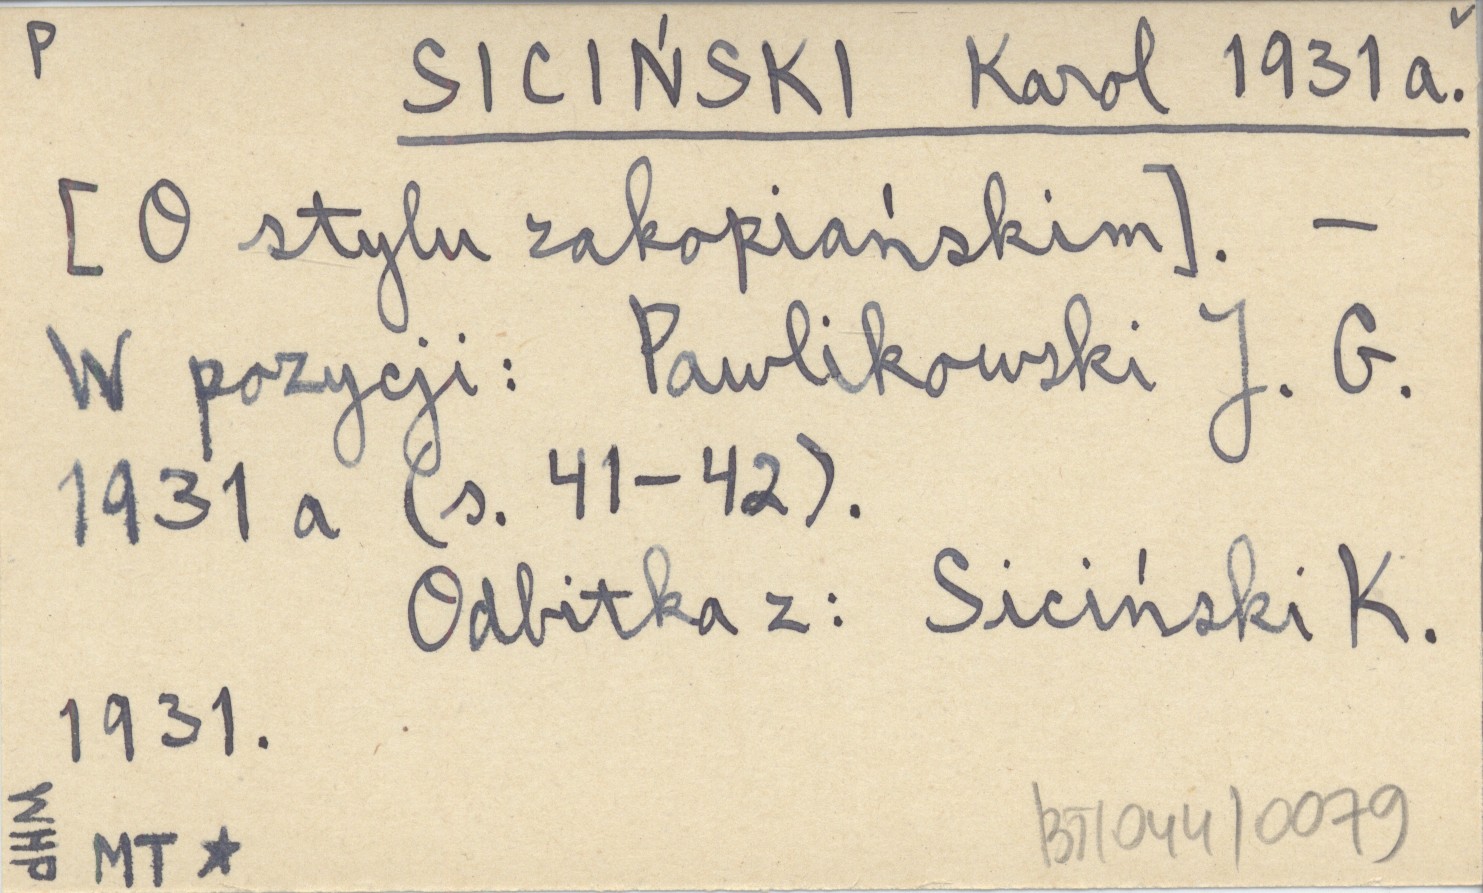 P
SICIŃSKI Karol 1931a.ˇ
[O stylu zakopiańskim]. —
W pozycji: Pawlikowski J. G.
1931a (s. 41-42).
Odbitka z: Siciński K.
1931.
WHP
MT ★
BT/044/0079